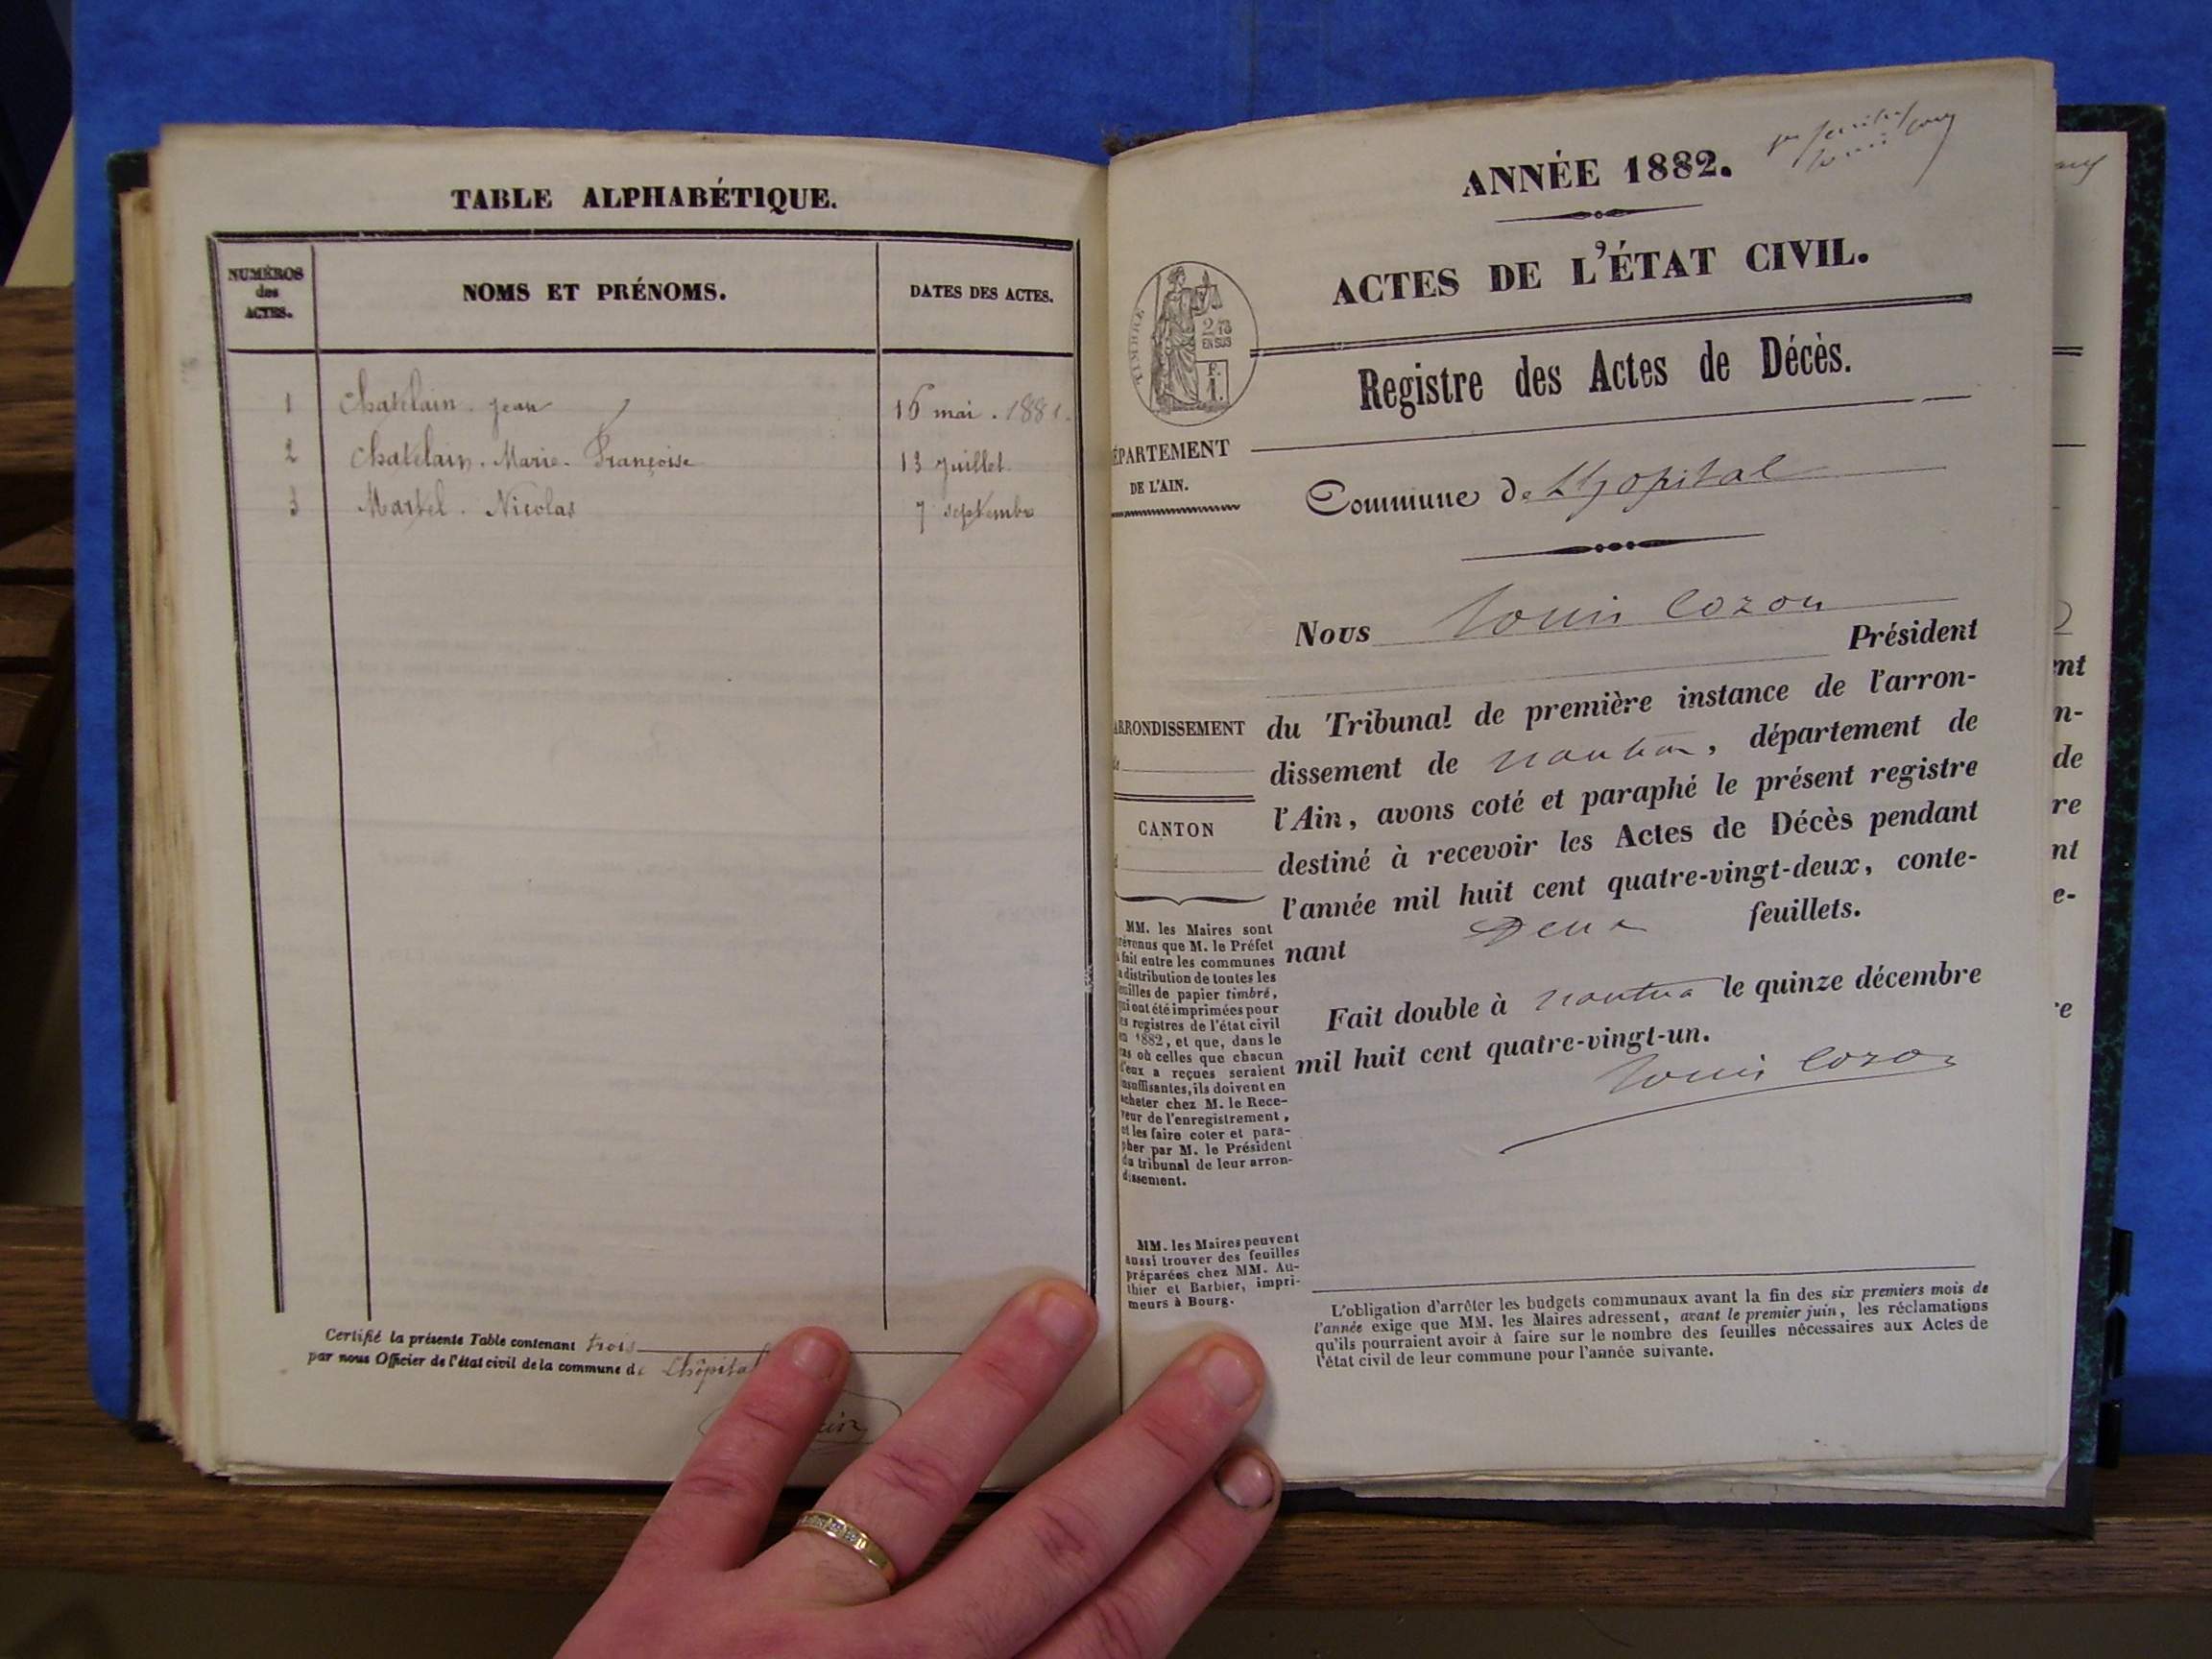 TABLE ALPHABÉTIQUE.
NUMÉROS
des
ACTES.
NOMS ET PRÉNOMS.
DATES DES ACTES.
1 Chatelain. Jean 16 mai. 1881.
2 Chatelain. Marie. Françoise 13 juillet.
3 Martel. Nicolas 7 septembre
Certifié la présente Table contenant trois
par nous Officier de l'état civil de la commune de Lhôpital
ANNÉE 1882.
ACTES DE L'ÉTAT CIVIL.
TIMBRE
2/10
EN SUS
F.
1.
Registre des Actes de Décès.
ÉPARTEMENT
DE L'AIN.
Commune de Lhopital
Nous Louis Cozon
Président
ARRONDISSEMENT
CANTON
du Tribunal de première instance de l'arron-
dissement de nantua, département de
l'Ain, avons coté et paraphé le présent registre
destiné à recevoir les Actes de Décès pendant
l'année mil huit cent quatre-vingt-deux, conte-
nant Deux feuillets.
Fait double à nantua le quinze décembre
mil huit cent quatre-vingt-un.
Louis Cozon
MM. les Maires sont
révenus que M. le Préfet
a fait entre les communes
a distribution de toutes les
euilles de papier timbré,
qui ont été imprimées pour
es registres de l'état civil
en 1882, et que, dans le
cas où celles que chacun
d'eux a reçues seraient
insuffisantes, ils doivent en
acheter chez M. le Rece-
veur de l'enregistrement,
et les faire coter et para-
pher par M. le Président
du tribunal de leur arron-
dissement.
MM. les Maires peuvent
aussi trouver des feuilles
préparées chez MM. Au-
thier et Barbier, impri-
meurs à Bourg.
L'obligation d'arrêter les budgets communaux avant la fin des six premiers mois de
l'année exige que MM. les Maires adressent, avant le premier juin, les réclamations
qu'ils pourraient avoir à faire sur le nombre des feuilles nécessaires aux Actes de
l'état civil de leur commune pour l'année suivante.
nt
n-
de
re
nt
e-
re